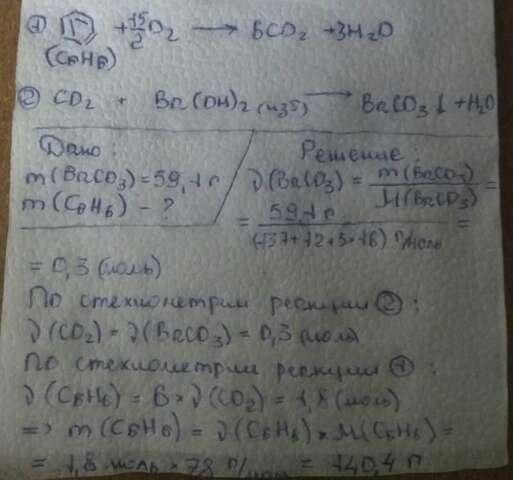 ① + 15/2 O₂ ⟶ 6CO₂ + 3H₂O
(C₆H₆)
② CO₂ + Ba(OH)₂ (изб) ⟶ BaCO₃↓ + H₂O
Дано:
m(BaCO₃) = 59,1 г
m(C₆H₆) - ?
Решение:
ν(BaCO₃) = m(BaCO₃) / M(BaCO₃) =
= 59,1 г / (137+12+3×16) г/моль =
= 0,3 (моль)
По стехиометрии реакции ②:
ν(CO₂) = ν(BaCO₃) = 0,3 (моль)
По стехиометрии реакции ①:
ν(C₆H₆) = 6 × ν(CO₂) = 1,8 (моль)
=> m(C₆H₆) = ν(C₆H₆) × M(C₆H₆) =
= 1,8 моль × 78 г/моль = 140,4 г